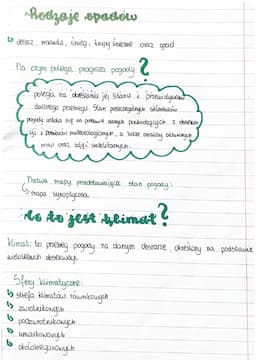 Rodzaje opadów
deszcz, mżawka, śnieg, krupy śnieżne oraz grad
Na czym polega prognoza pogody?
polega na określeniu jej stanu i przewidywaniu
dalszego przebiegu. Stan poszczególnych składników
pogody ustala się na podstawie danych pochodzących z
i z pomiarów meteorologicznych, a także analizy
map oraz zdjęć satelitarnych.
Nazwa mapy przedstawiająca stan pogody:
mapa synoptyczna
Co to jest klimat?
Klimat to przebieg pogody na danym obszarze, określony na podstawie
wieloletnich obserwacji.
Strefy klimatyczne:
strefa klimatów równikowych
zwrotnikowych
podzwrotnikowych
umiarkowanych
okołobiegunowych